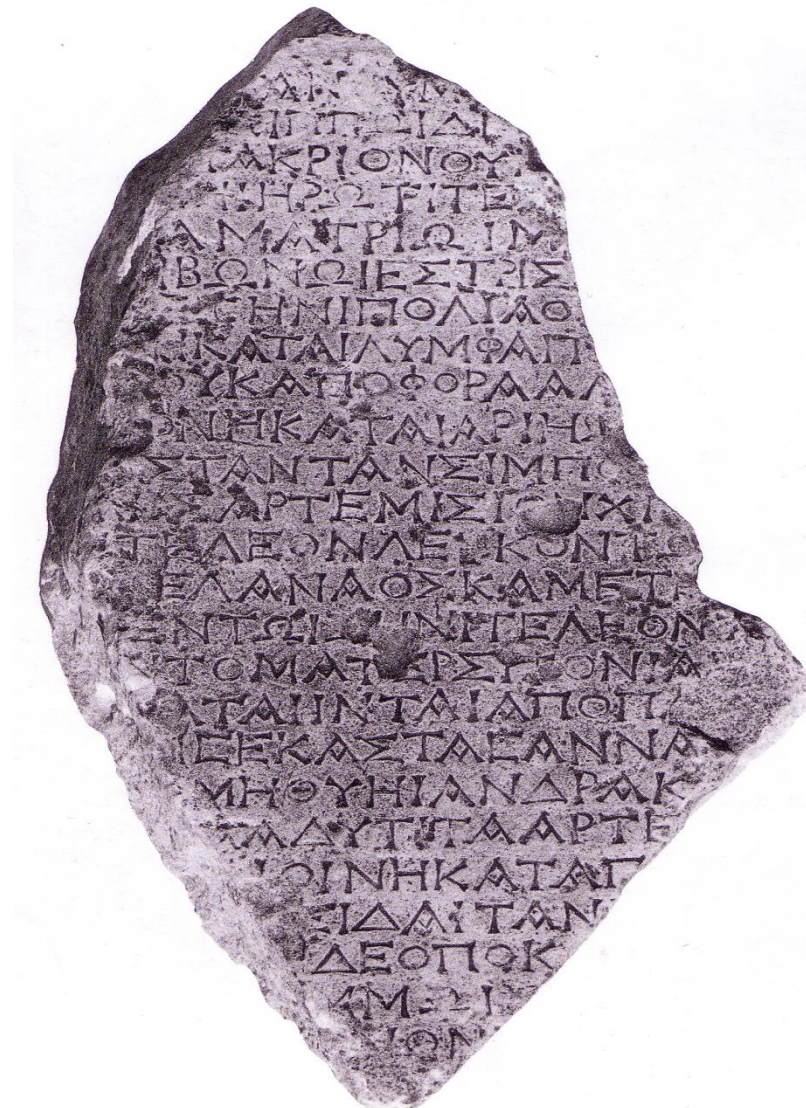 ΙΠΠΩΙΔΙ
ΑΚΡΙΟΝΟΥ
ΗΡΩΤΙΤΕ
ΑΜΑΤΡΙΩΙΜ
ΙΒΩΝΩΙΕΣΤΡΙΣ
ΣΗΝΙΠΟΛΙΑΟ
ΚΑΤΑΙΛΥΜΦΑΠ
ΟΥΚΑΠΟΦΟΡΑΑΛ
ΟΝΗΚΑΤΑΙΑΡΙΗΩ
ΣΤΑΝΤΑΝΣΙΜΠΟ
ΑΡΤΕΜΙΣΙΟΝΧΙ
ΤΕΛΕΟΝΛΕΥΚΟΝΤΩ
ΕΛΑΝΑΟΣΚΑΜΕΤ
ΕΝΤΩΙ ΗΝΙΤΕΛΕΟΝ
ΝΤΟΜΑΤΕΡΣΥ ΟΝΙΑ
ΑΤΑΙΙΝΤΑΙΑΠΟΠ
ΙΣΕΚΑΣΤΑΣΑΝΝΑ
ΜΗΘΥΗΙΑΝΔΡΑΚ
ΑΔΥΤΙΤΑΑΡΤΕ
ΟΙΝΗΚΑΤΑΠ
ΣΙΔΑΙΤΑΝ
ΔΕΟΠΟΚ
ΑΜΩΙ
ΙΟΝ